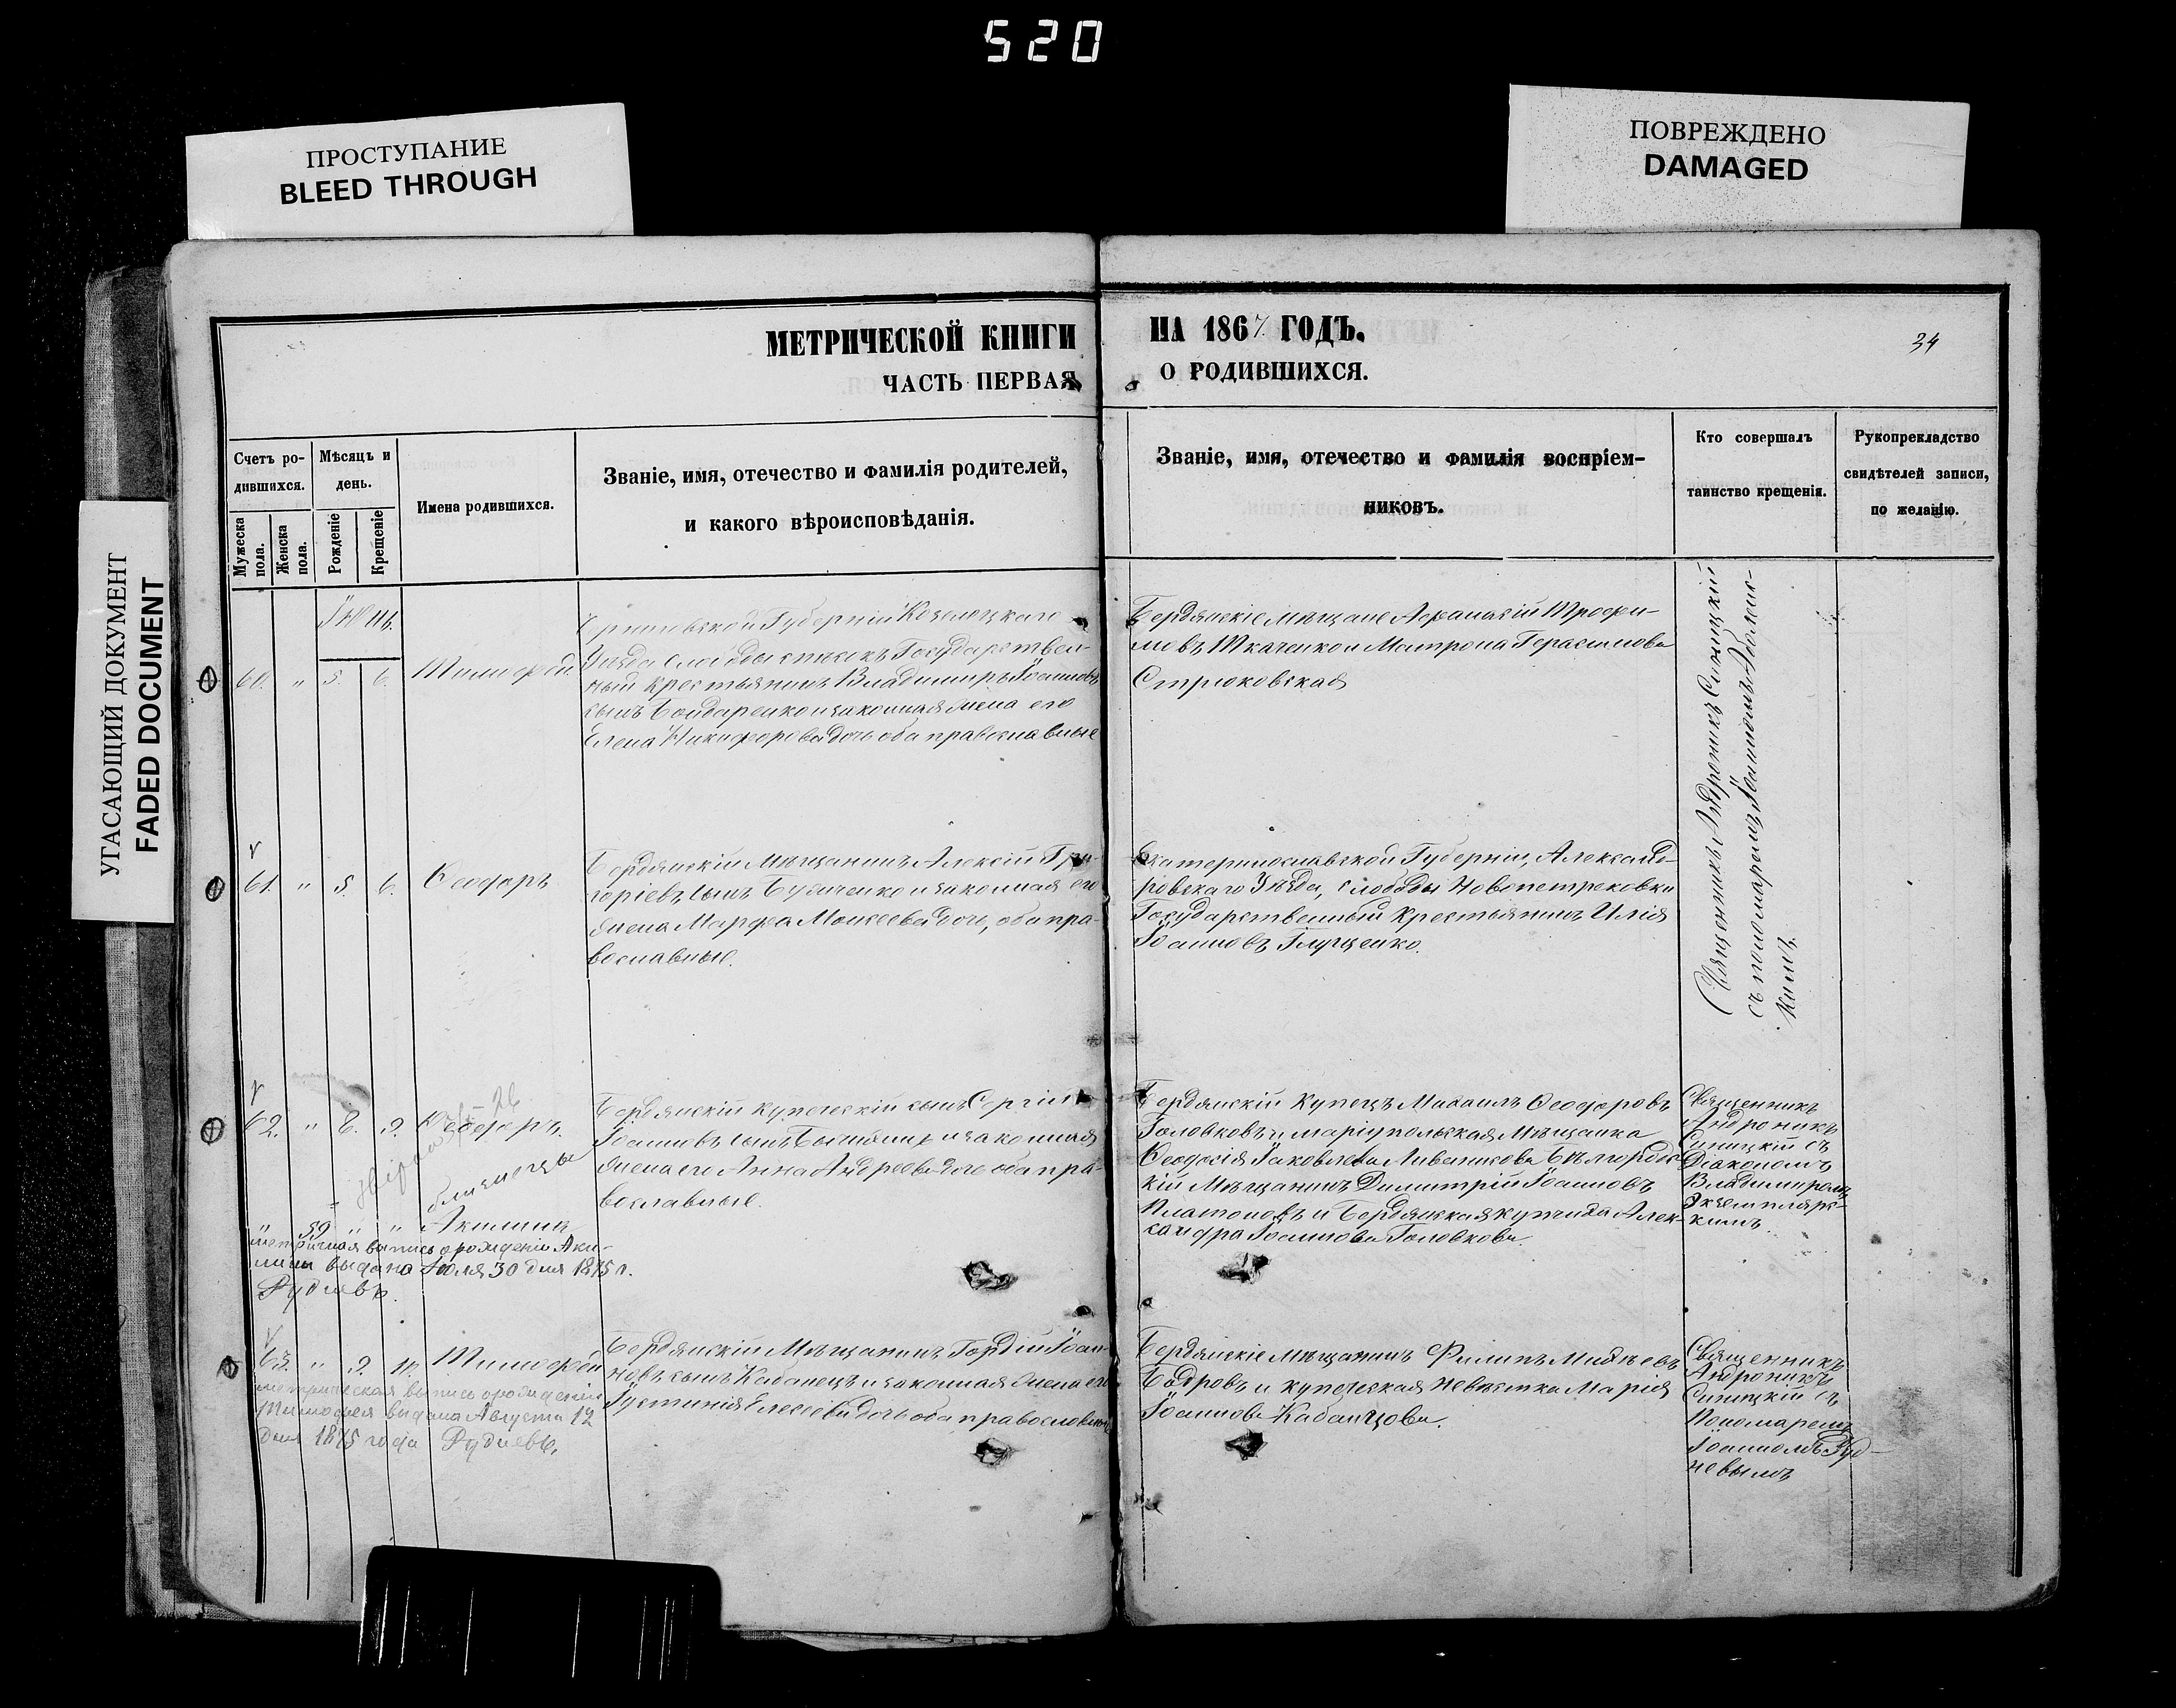 520
ПРОСТУПАНИЕ
BLEED THROUGH
ПОВРЕЖДЕНО
DAMAGED
УГАСАЮЩИЙ ДОКУМЕНТ
FADED DOCUMENT
МЕТРИЧЕСКОЙ КНИГИ
ЧАСТЬ ПЕРВАЯ,
НА 1867 ГОДЪ.
О РОДИВШИХСЯ.
34
Счетъ ро-
дившихся.
Мужеска пола.
Женска пола.
Мѣсяцъ и
день.
Рожденіе
Крещеніе
Имена родившихся.
Званіе, имя, отечество и фамилія родителей,
и какого вѣроисповѣданія.
Званіе, имя, отечество и фамилія воспріем-
никовъ.
Кто совершалъ
таинство крещенія.
Рукоприкладство
свидѣтелей записи,
по желанію.
Іюнь.
60. " 5. 6. Тимофей.
Губерніи Козелецкаго
Уѣзда Государствен-
ный крестьянинъ Владимиръ Іоанновъ
сынъ Бондаренко и законная жена его
Елена Никифорова дочь оба православные
Бердянскіе мѣщане Афанасій Трофи-
мовъ Ткаченко и Матрона Герасимова
Стрюковская
Священникъ Андроникъ Синицкій
съ пономаремъ Іоанномъ
кимъ.
61. " 5. 6. Ѳеодоръ
Бердянскій Мѣщанинъ Алексій Гри-
горіевъ сынъ и законная его
жена Марфа Моисеева дочь, оба пра-
вославные.
Екатеринославской Губерніи, Александ-
ровскаго Уѣзда, слободы Новопетрековки
Государственный крестьянинъ Илія
Іоанновъ Глущенко.
62. " 8. 9. Ѳеодоръ.
близнецы
59 " " Акилина
Бердянскій купеческій сынъ Сергій
Іоанновъ сынъ и законная
жена его Анна Андреева дочь оба пра-
вославные.
Бердянскій купецъ Михаилъ Ѳеодоровъ
Головковъ и маріупольская мѣщанка
Ѳеодосія Іаковлева
кій Мѣщанинъ Димитрій Іоанновъ
Платоновъ и Бердянская купчиха Алек-
сандра Іоаннова Головкова.
Священникъ
Андроникъ
Синицкій съ
Діакономъ
Владимиромъ
Экземпляр-
кимъ.
метричная выпись о рожденіи Аки-
лины выдана Іюля 30 дня 1875 г.
Рудневъ.
63. " 9. 11. Тимофей
Бердянскій Мѣщанинъ Гордій Іоан-
новъ сынъ Кабанецъ и законная жена его
Іустинія Елесеева дочь оба православные
Бердянскіе мѣщанинъ Филипъ
Бодровъ и купеческая невѣстка Марія
Іоаннова Кабанцова.
Священникъ
Андроникъ
Синицкій съ
Пономаремъ
Іоанномъ Руд-
невымъ
метрическая выпись о рожденіи
Тимофея выдана Августа 12
дня 1875 года Рудневъ.